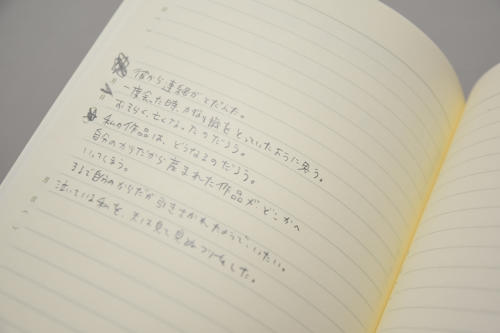 彼から連絡がとだえた。
一度会った時、かなり歳をとっていたように思う。
おそらく、亡くなったのだろう。
私の作品は、どうなるのだろう。
自分のからだから産まれた作品が、どこかへ
いってしまう。
まるで自分のからだが引きさかれたようで、いたい。
泣いている私を、夫は見て見ぬフリをした。